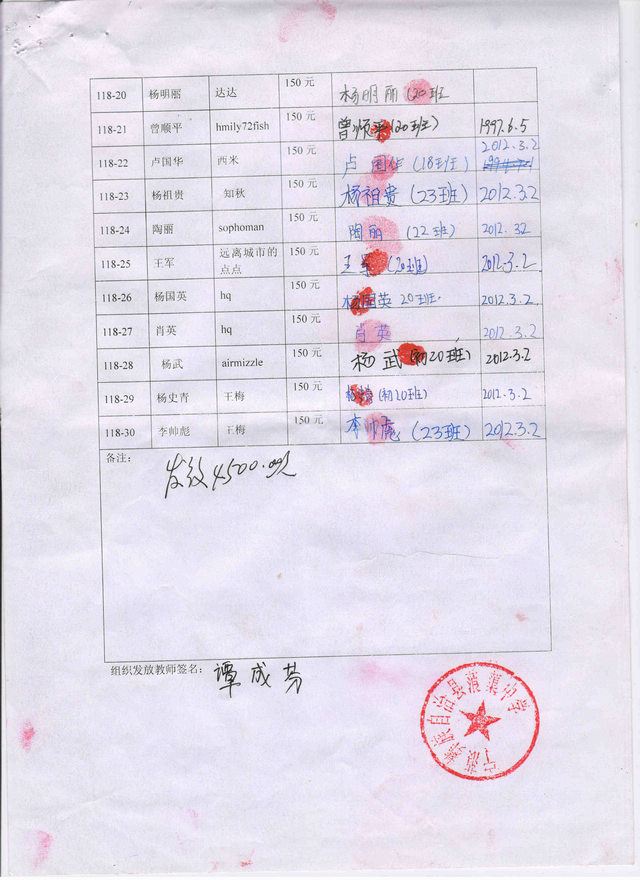 118-20 杨明丽 达达 150 元 杨明丽 (20班
118-21 曾顺平 hmily72fish 150 元 曾顺平(20班) 1997.6.5
118-22 卢国华 西米 150 元 卢国华 (18班) 2012.3.2
118-23 杨祖贵 知秋 150 元 杨祖贵 (23班) 2012.3.2
118-24 陶丽 sophoman 150 元 陶丽 (22班) 2012.32
118-25 王军 远离城市的点点 150 元 王军 (20班) 2012.3.2
118-26 杨国英 hq 150 元 杨国英 20班 2012.3.2
118-27 肖英 hq 150 元 肖英 2012.3.2
118-28 杨武 airmizzle 150 元 杨武 (初20班) 2012.3.2
118-29 杨史青 王梅 150 元 (初20班) 2012.3.2
118-30 李帅彪 王梅 150 元 李帅彪 (23班) 2012.3.2
备注:
发放4500.00元
组织发放教师签名: 谭成芬
自治县 中学